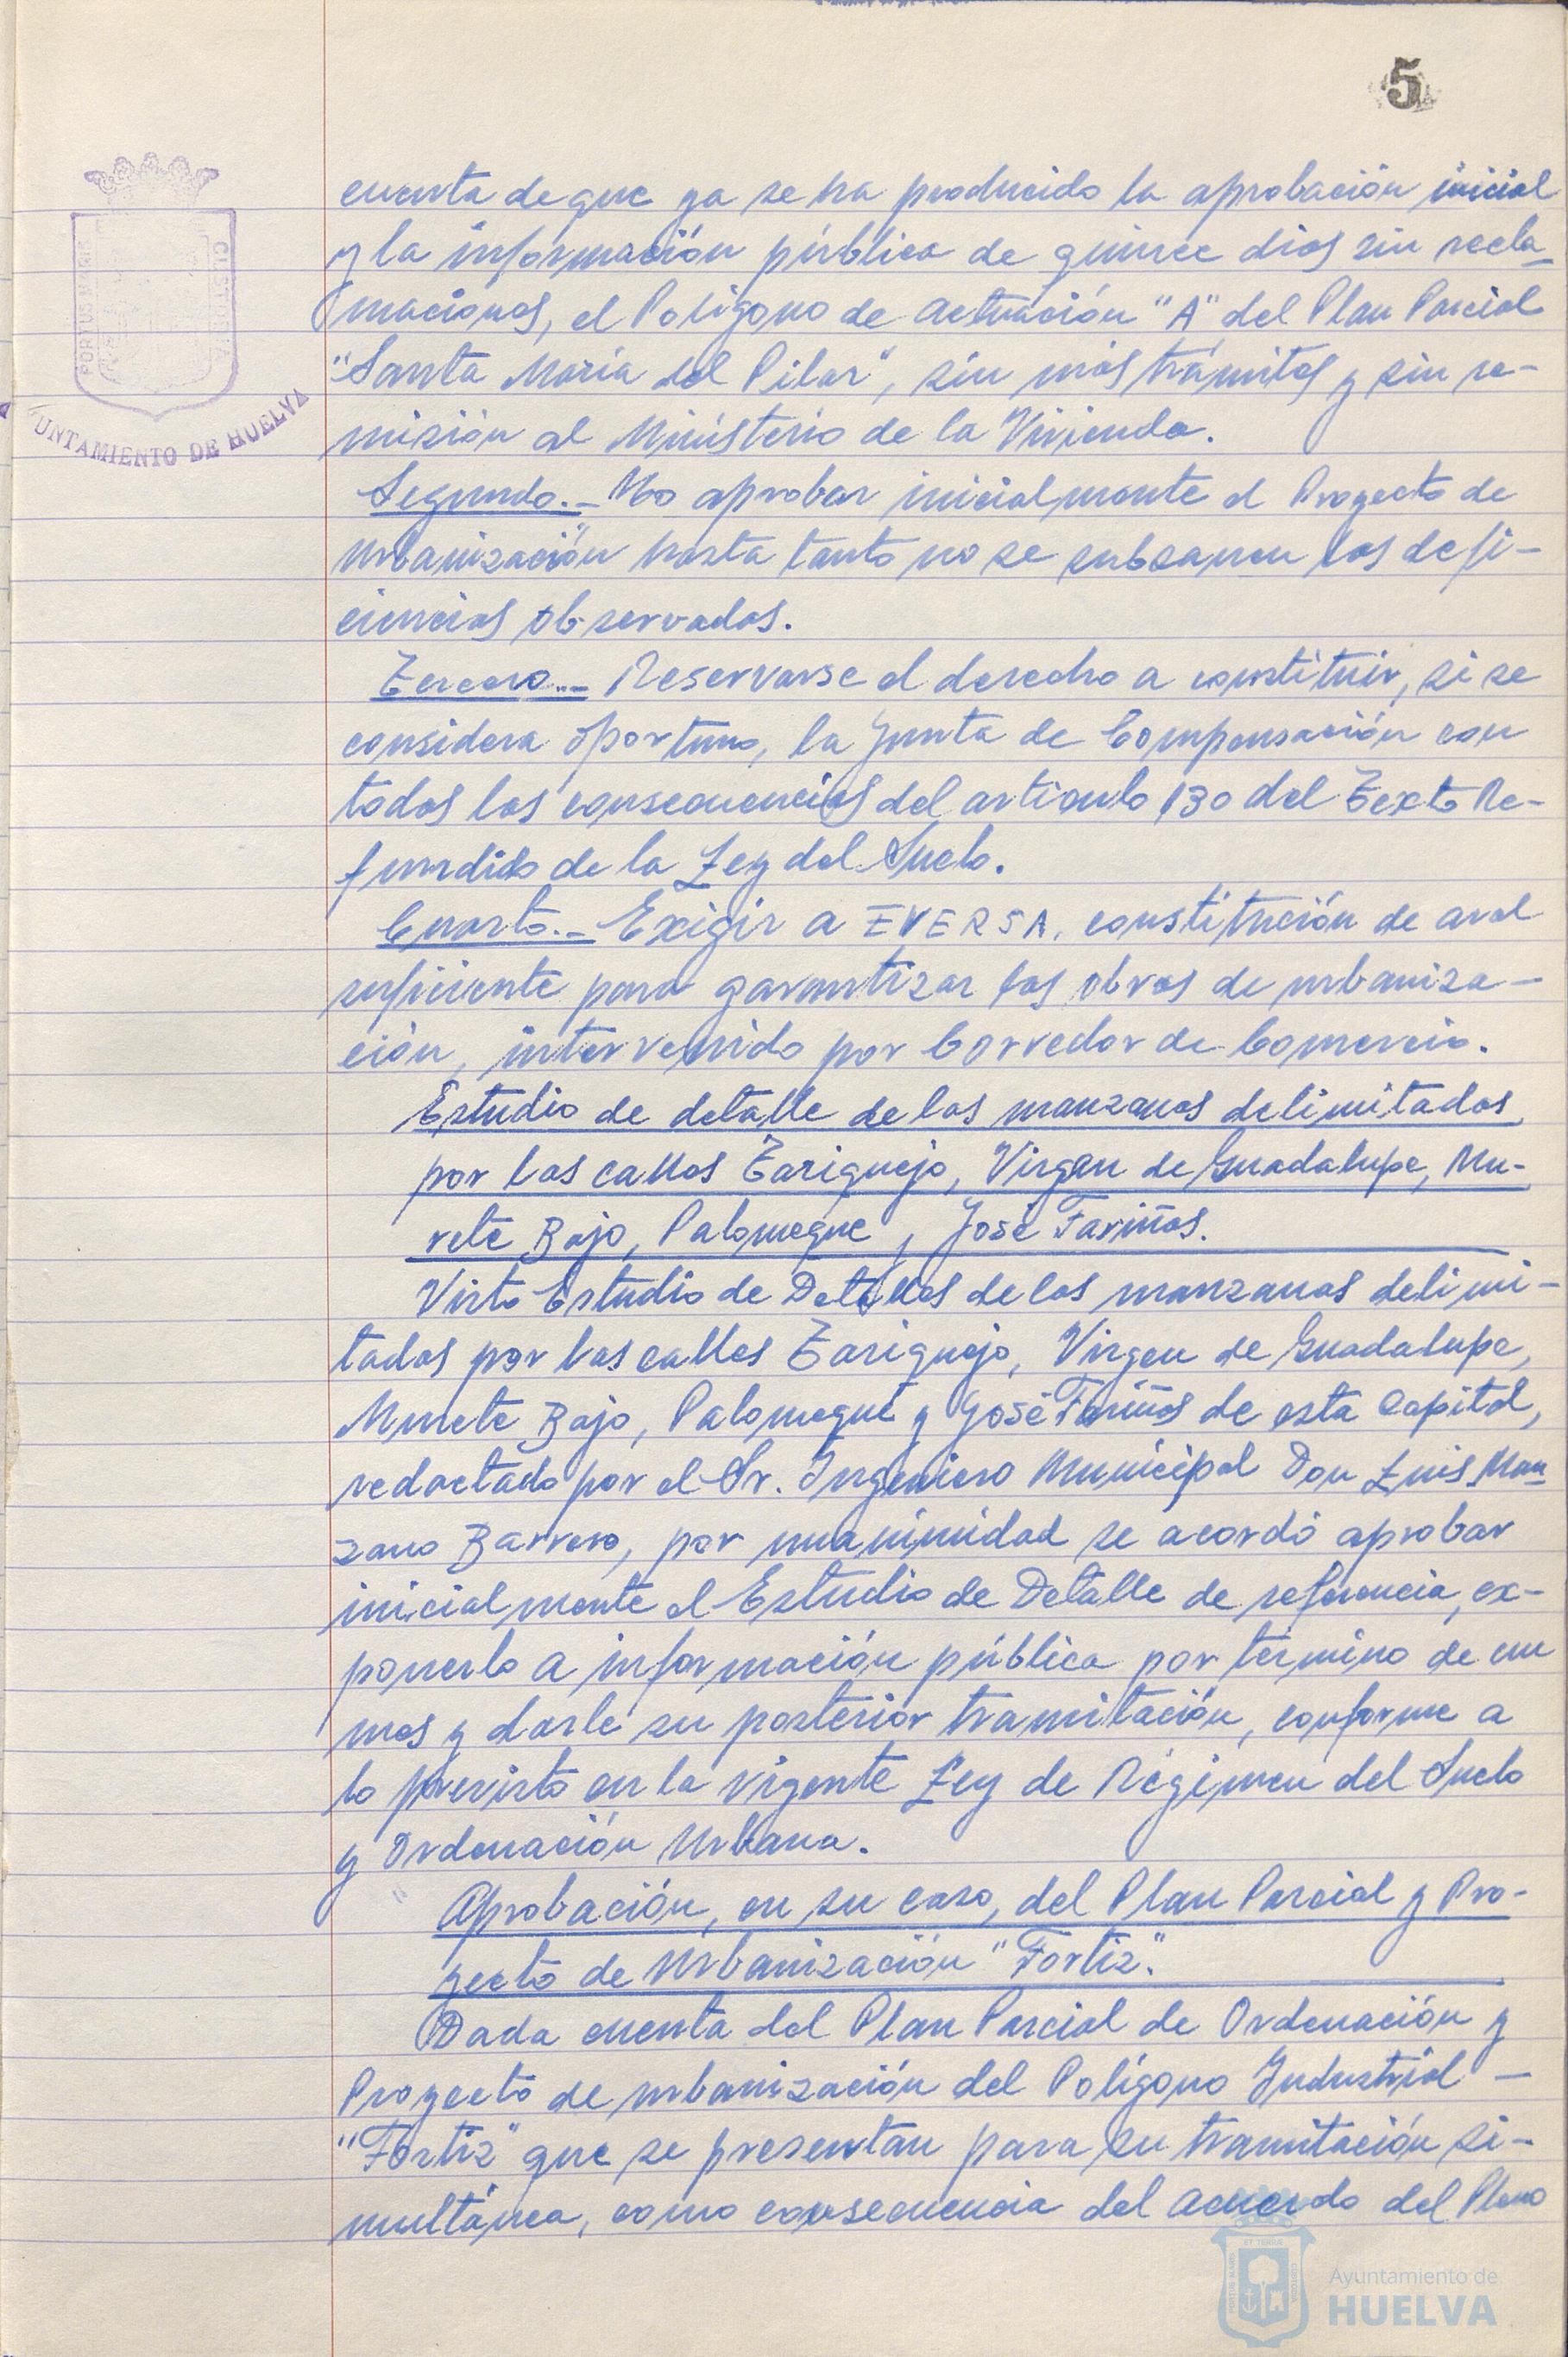 5
PORTUS MARIS
CUSTODIA
UNTAMIENTO DE HUELVA
cuenta de que ya se ha producido la aprobación inicial
y la información pública de quince dias sin recla-
maciones, el Polígono de actuación "A" del Plan Parcial
"Santa María del Pilar", sin más trámites y sin re-
misión al Ministerio de la Vivienda.
Segundo.- No aprobar inicialmente el Proyecto de
Urbanización hasta tanto no se subsanen las defi-
ciencias observadas.
Tercero.- Reservarse el derecho a constituir, si se
considera oportuno, la Junta de Compensación con
todas las consecuencias del artículo 130 del Texto Re-
fundido de la Ley del Suelo.
Cuarto.- Exigir a EVERSA, constitución de aval
suficiente para garantizar las obras de urbaniza-
ción, intervenido por Corredor de Comercio.
Estudio de detalle de las manzanas delimitadas
por las calles Tariquejo, Virgen de Guadalupe, Mu-
rete Bajo, Palomeque, José Fariñas.
Visto Estudio de Detalles de las manzanas delimi-
tadas por las calles Tariquejo, Virgen de Guadalupe,
Murete Bajo, Palomeque y José Fariñas de esta Capital,
redactado por el Sr. Ingeniero Municipal Don Luis Man-
zano Barrero, por unanimidad se acordó aprobar
inicialmente el Estudio de Detalle de referencia, ex-
ponerlo a información pública por término de un
mes y darle su posterior tramitación, conforme a
lo previsto en la vigente Ley de Régimen del Suelo
y Ordenación Urbana.
Aprobación, en su caso, del Plan Parcial y Pro-
yecto de Urbanización "Fortiz".
Dada cuenta del Plan Parcial de Ordenación y
Proyecto de urbanización del Polígono Industrial -
"Fortiz" que se presentan para su tramitación si-
multánea, como consecuencia del acuerdo del Pleno
Ayuntamiento de
HUELVA